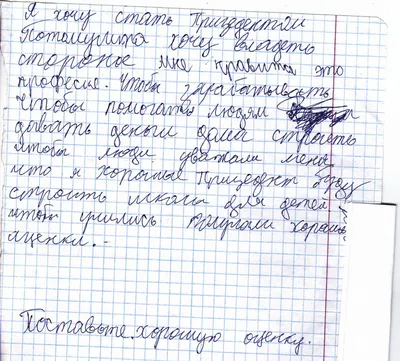 Я хочу стать Призедентом
Потомушта хочу владеть
стороное мне нравита это
професие. Чтобы зарабатывать
Чтобы помогать людям
довать деньги дома строеть
чтобы люди уважали меня
что я хороший Призедент буду
строить школы для детей
чтобы учились получали хорошы
аценки.
Поставьте хорошую оценку.